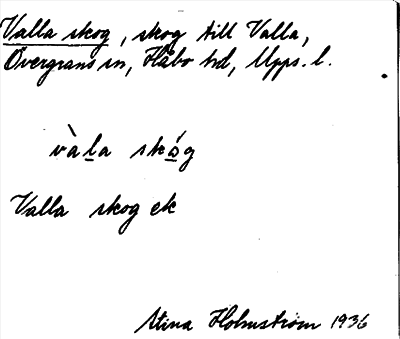 Valla skog, skog till Valla,
Övergrans sn, Håbo hd, Upps. l.
vàla skóg
Valla skog ek
Stina Holmström 1936